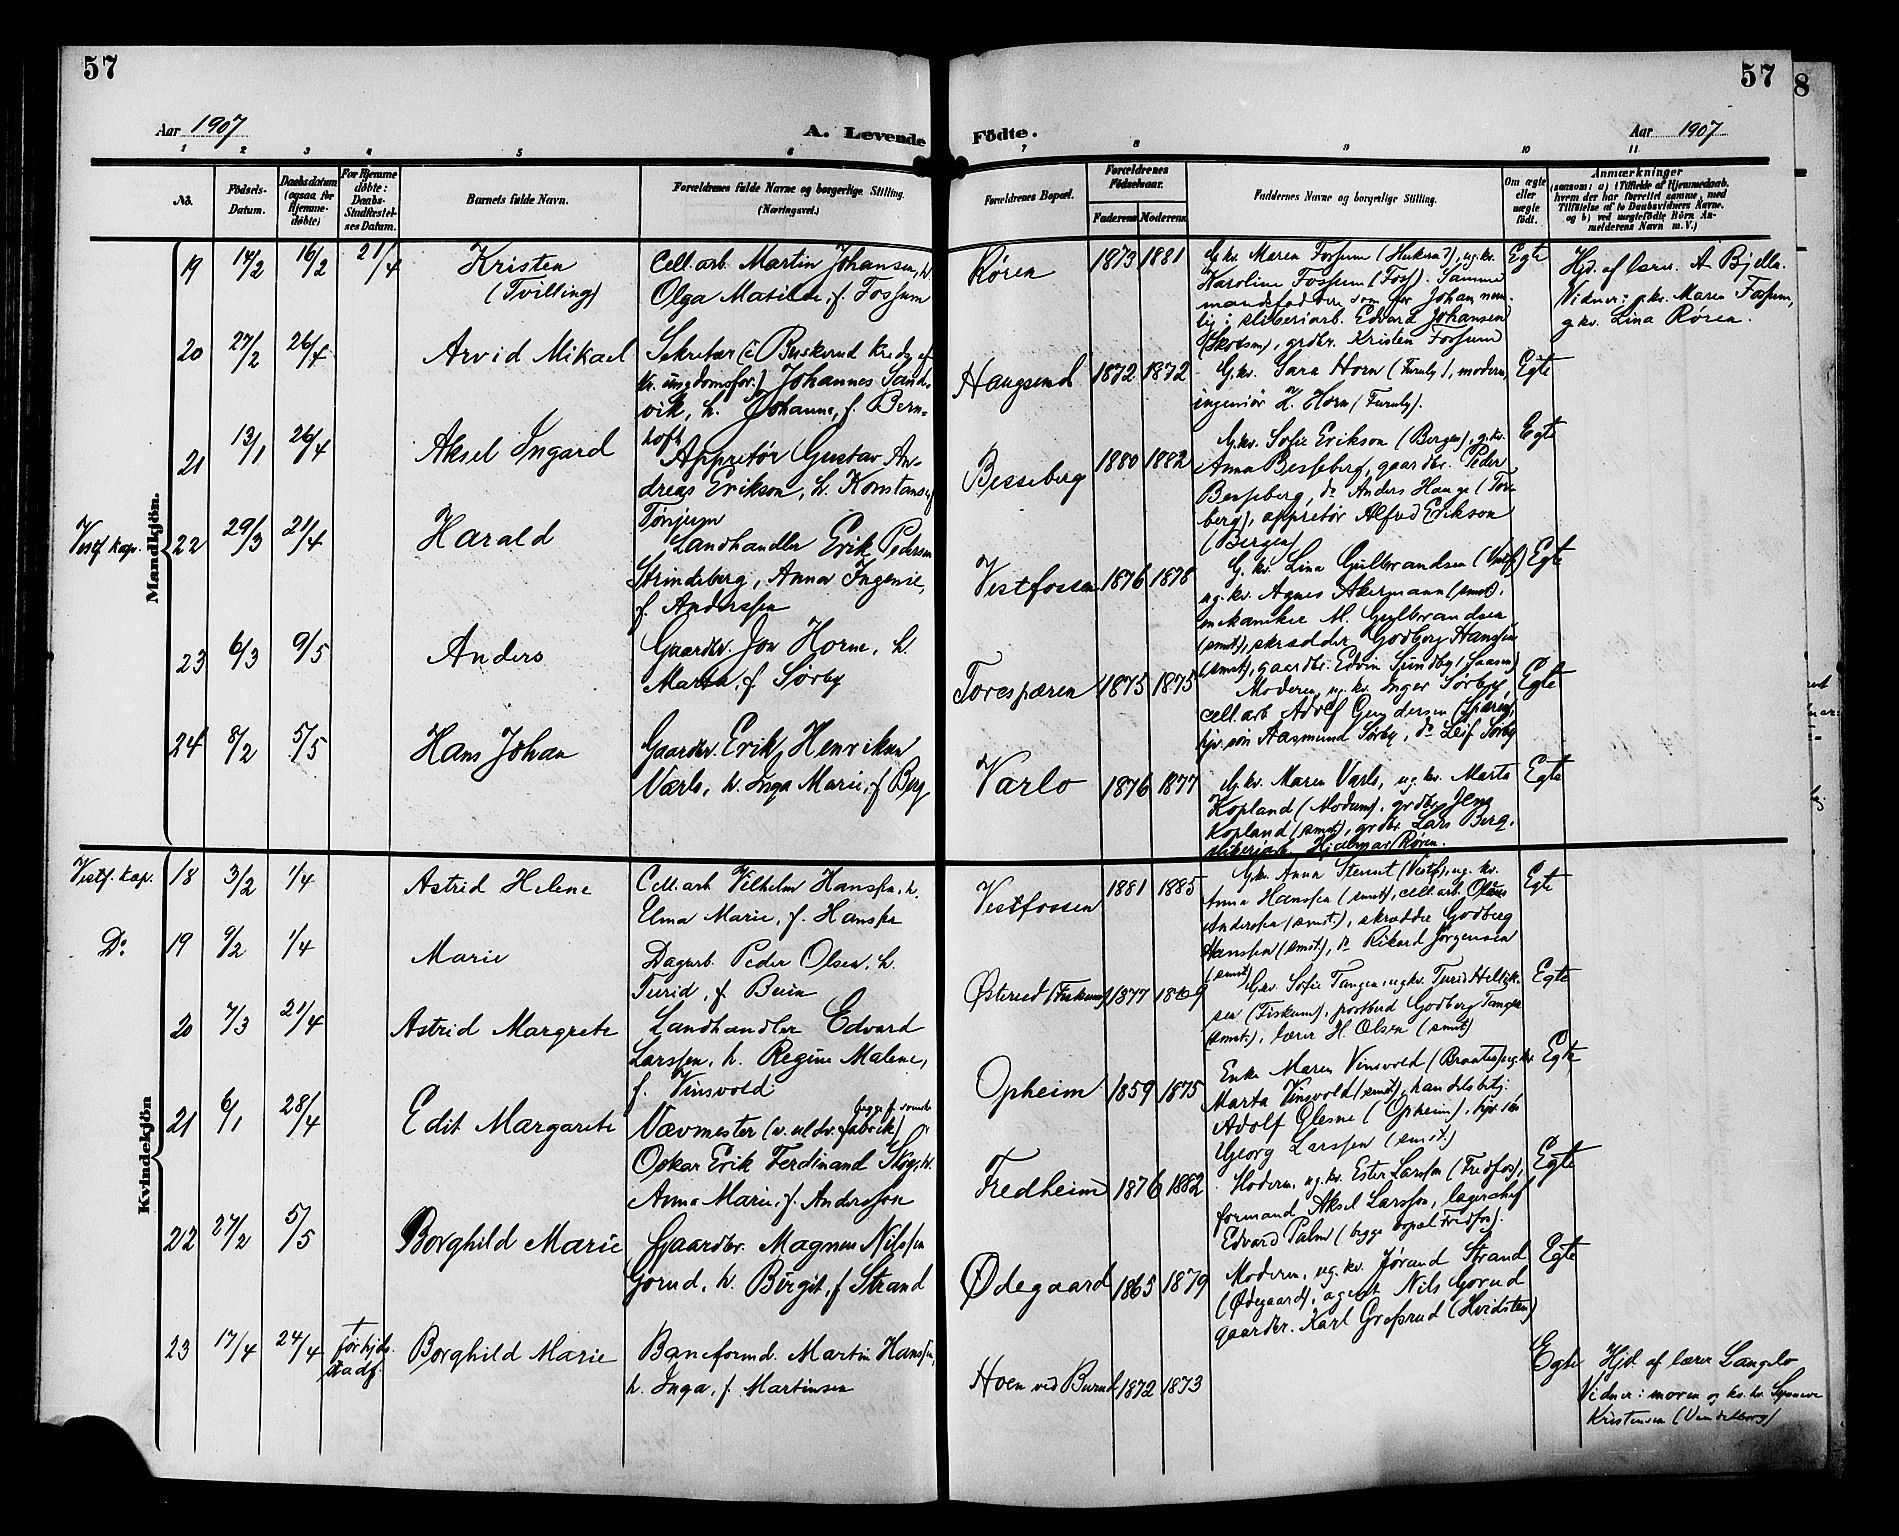 57
57
8
Aar 1907
A. Levende Födte.
Aar 1907
1 2 3 4 5 6 7 8 9 10 11
No.
Födsels-Datum.
Daabsdatum (ogsaa for Hjemme-döbte)
For Hjemme döbte: Daabs-Stadfæstelses Datum.
Barnets fulde Navn.
Forældrenes fulde Navne og borgerlige Stilling.
(Næringsvei.)
Forældrenes Bopæl.
Forældrenes Födselsaar.
Faderens Moderens
Faddernes Navne og borgerlige Stilling.
Om ægte eller uægte födt.
Anmærkninger
(saasom: a) i Tilfælde af Hjemmedaab, hvem der har forrettet samme, med Tilföielse af to Daabsvidners Navne, og b) ved uægtefödte Börn Anmelderens Navn m. V.)
Mandkjön.
19 14/2 16/2 21/4 Kristen
(Tvilling)
Cell.arb. Martin Johansen, h.
Olga Matilde, f. Fossum
Røren 1873 1881
G.kv. Maren Fossum, ug.kv.
Karoline Fossum (Foss). Samme
mandsfaddere som for Johan nem-
lig: sliberiarb. Edvard Johansen
(Skotsm), grdbr. Kristen Fossum
Egte
Hjd. af lærer A. Bjella.
Vidner: gkv. Maren Fossum,
gkv. Lina Røren.
20 27/2 26/4 Arvid Mikael
Sekretær (i Buskerud Kreds af
kr. ungdomsfor.) Johannes Sand-
vik, h. Johanne, f. Bern-
hoft
Haugsund 1872 1872
G.kv. Sara Horn (Furuly), moderen,
ingeniør H. Horn (Furuly).
Egte
21 13/1 26/4 Aksel Ingard
Appretør Gustav An-
dreas Erikson, h. Konstanse f.
Tønjum
Besseberg 1880 1882
G.kv. Sofie Erikson (Bergen), g.kv.
Anna Besseberg, gaardbr. Peder
Besseberg, do Anders Hauge
berg), appretør Alfred Erikson
(Bergen)
Egte
Vestf. kap. 22 29/3 21/4 Harald
Landhandler Erik Pedersen
Strindeberg, Anna Ingenie,
f. Anderssen
Vestfossen 1876 1878
G. kv. Lina Gulbrandsen (Vestf.)
ug.kv. Agnes Akermann (smst),
mekaniker M. Gulbrandsen
(smst), skrædder Godberg Hanssen
(smst), gaardbr. Edvin Sundby
Egte
23 6/3 9/5 Anders
Gaardbr. Jon Horne, h.
Marta, f. Sørby
Torespæren 1875 1875
Moderen, ug. kv. Inger Sørby,
cell.arb Adolf Gundersen
hjv. søn Aasmund Sørby, do Leif Sørby
Egte
24 8/2 5/5 Hans Johan
Gaardbr. Erik Henriksen
Varlo, h. Inga Marie, f. Berg
Varlo 1876 1877
G.kv. Maren Varlo, ug.kv. Marta
Kopland (Modum), grdbr. Jens
Kopland (smst), grdbr. Lars Berg,
sliberiarb. Hjalmar Røren.
Egte
Kvindekjön
Vestf. kap. 18 3/2 1/4 Astrid Helene
Cell.arb. Vilhelm Hanssen, h.
Elma Marie, f. Hanssen
Vestfossen 1881 1885
Gkv. Anna Stensét (Vestf), ug. kv.
Anna Hanssen (smst), cell.arb. Olaus
Anderssen (smst.), skrædder Godberg
Hanssen (smst), do Rikard Jørgensen
(smst)
Egte
Do 19 9/2 1/4 Marie
Dagarb. Peder Olsen, h.
Turid, f. Buin
Østerud (Fiskum) 1877 1869
Gkv. Sofie Tangen, ugkv. Turid Helliksen
(Fiskum), postbud Godberg Tangen
(smst.), lærer H. Olsen (smst)
Egte
20 7/3 21/4 Astrid Margrete
Landhandler Edvard
Larssen, h. Regine Malene,
f. Vinsvold
Opheim 1859 1875
Enke Maren Vinsvold (Braaten) ug.kv.
Marta Vinsvold (smst), handelsbetj.
Adolf Glesne (Opheim), hjv. søn
Georg Larssen (smst.)
Egte
21 6/1 28/4 Edit Margarete
Vævmester (v. uldv.fabrik) begge f. svenske
Oskar Erik Ferdinand Skog, h.
Anna Marie, f. Andersson
Fredheim 1876 1882
Moderen, ug.kv. Ester Larsson (Fredfos),
formand Aksel Larsson, lagerchef
Edvard Palm (begge bopæl Fredfos).
Egte
22 27/2 5/5 Borghild Marie
Gaardbr. Magnus Nilssen
Gorud, h. Birgit, f. Strand
Ødegaard 1865 1879
Moderen, ug. kv. Jørand Strand
(Ødegaard), agent Nils Gorud
gaardbr. Karl Grøsrud (Hvidsten)
Egte
23 17/4 24/4 † før hjds. stadf. Borghild Marie
Baneformd. Martin Hanssen,
h. Inga, f. Martinsen
Hoen ved Burud 1872 1873
Egte
Hjd. af lærer Langelo
Vidner: moren og ks. hr. Synneve
Kristensen